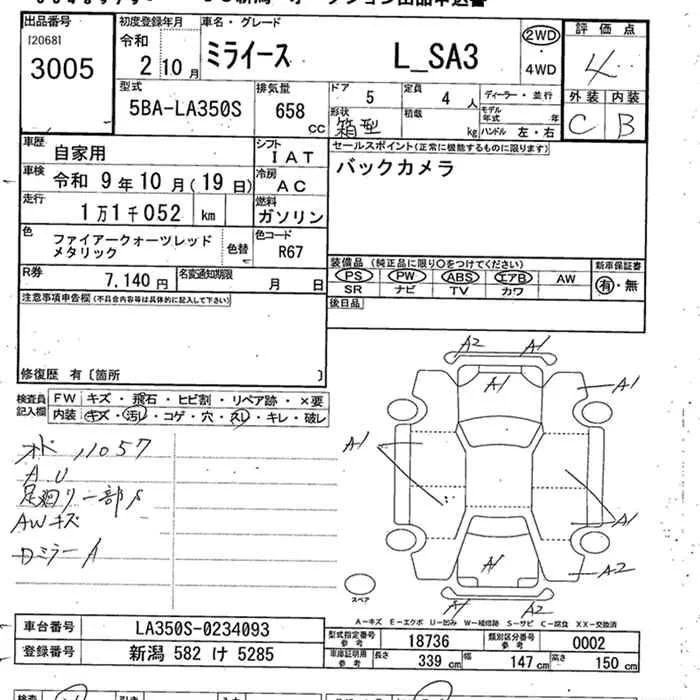 出品番号
[2068]
3005
初度登録年月
令和
2 10月
車名・グレード
ミライース L_SA3
2WD
4WD
評価点
4
外装 内装
C B
型式
5BA-LA350S
排気量
658
CC
ドア
5
定員
4 人
形状
箱型
積載
kg
ディーラー・並行
モデル年式 年
ハンドル 左・右
車歴
自家用
シフト
IAT
車検
令和 9年10月(19日)
冷房
AC
走行
1万1千052 km
燃料
ガソリン
色
ファイアークォーツレッド
メタリック
色替
色コード
R67
R券
7,140円
名変通知期限
月 日
セールスポイント(正常に機能するものに限ります)
バックカメラ
装備品(純正品に限り○をつけてください)
PS PW ABS エアB AW
SR ナビ TV カワ
新車保証書
有・無
後日品
注意事項申告欄(不具合内容等は具体的に記入して下さい)
修復歴 有〔箇所 〕
検査員
記入欄
FW キズ・飛石・ヒビ割・リペア跡・×要
内装 キズ・汚レ・コゲ・穴・スレ・キレ・破レ
オド 11057
AU
足廻り一部S
AWキズ
DミラーA
A2 A1
A1
A1
A1
A1
A1
A2
A1 A2
スペア
A−キズ E−エクボ U−凹み W−補修跡 S−サビ C−腐食 XX−交換済
車台番号
LA350S-0234093
登録番号
新潟 582 け 5285
型式指定番号
参考
18736
類別区分番号
参考
0002
車庫証明用
参考
長さ
339 cm
幅
147 cm
高さ
150 cm